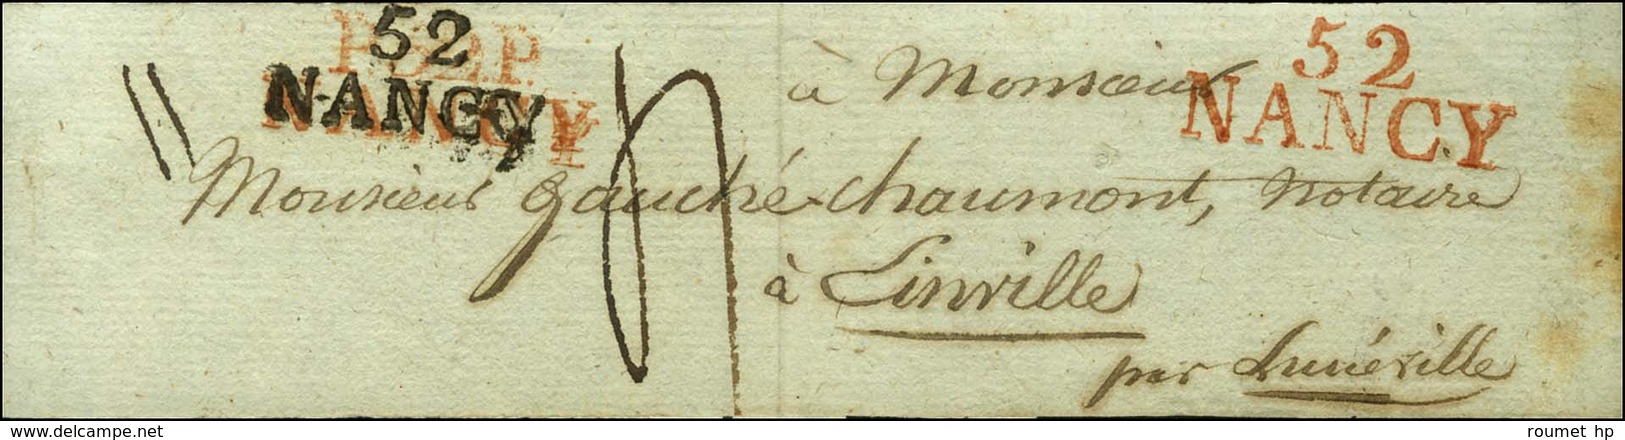 P.52.P.
NANCY
52
NANCY
52
NANCY
à Monsieur
Monsieur Gauché-Chaumont, Notaire
à Einville
par Lunéville
www.delcampe.net
roumet hp